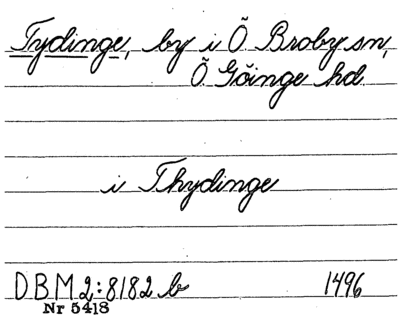 Tydinge, by i Ö. Broby sn,
Ö. Göinge hd.
i Thydinge
DBM 2:8182 b 1496
Nr 5418